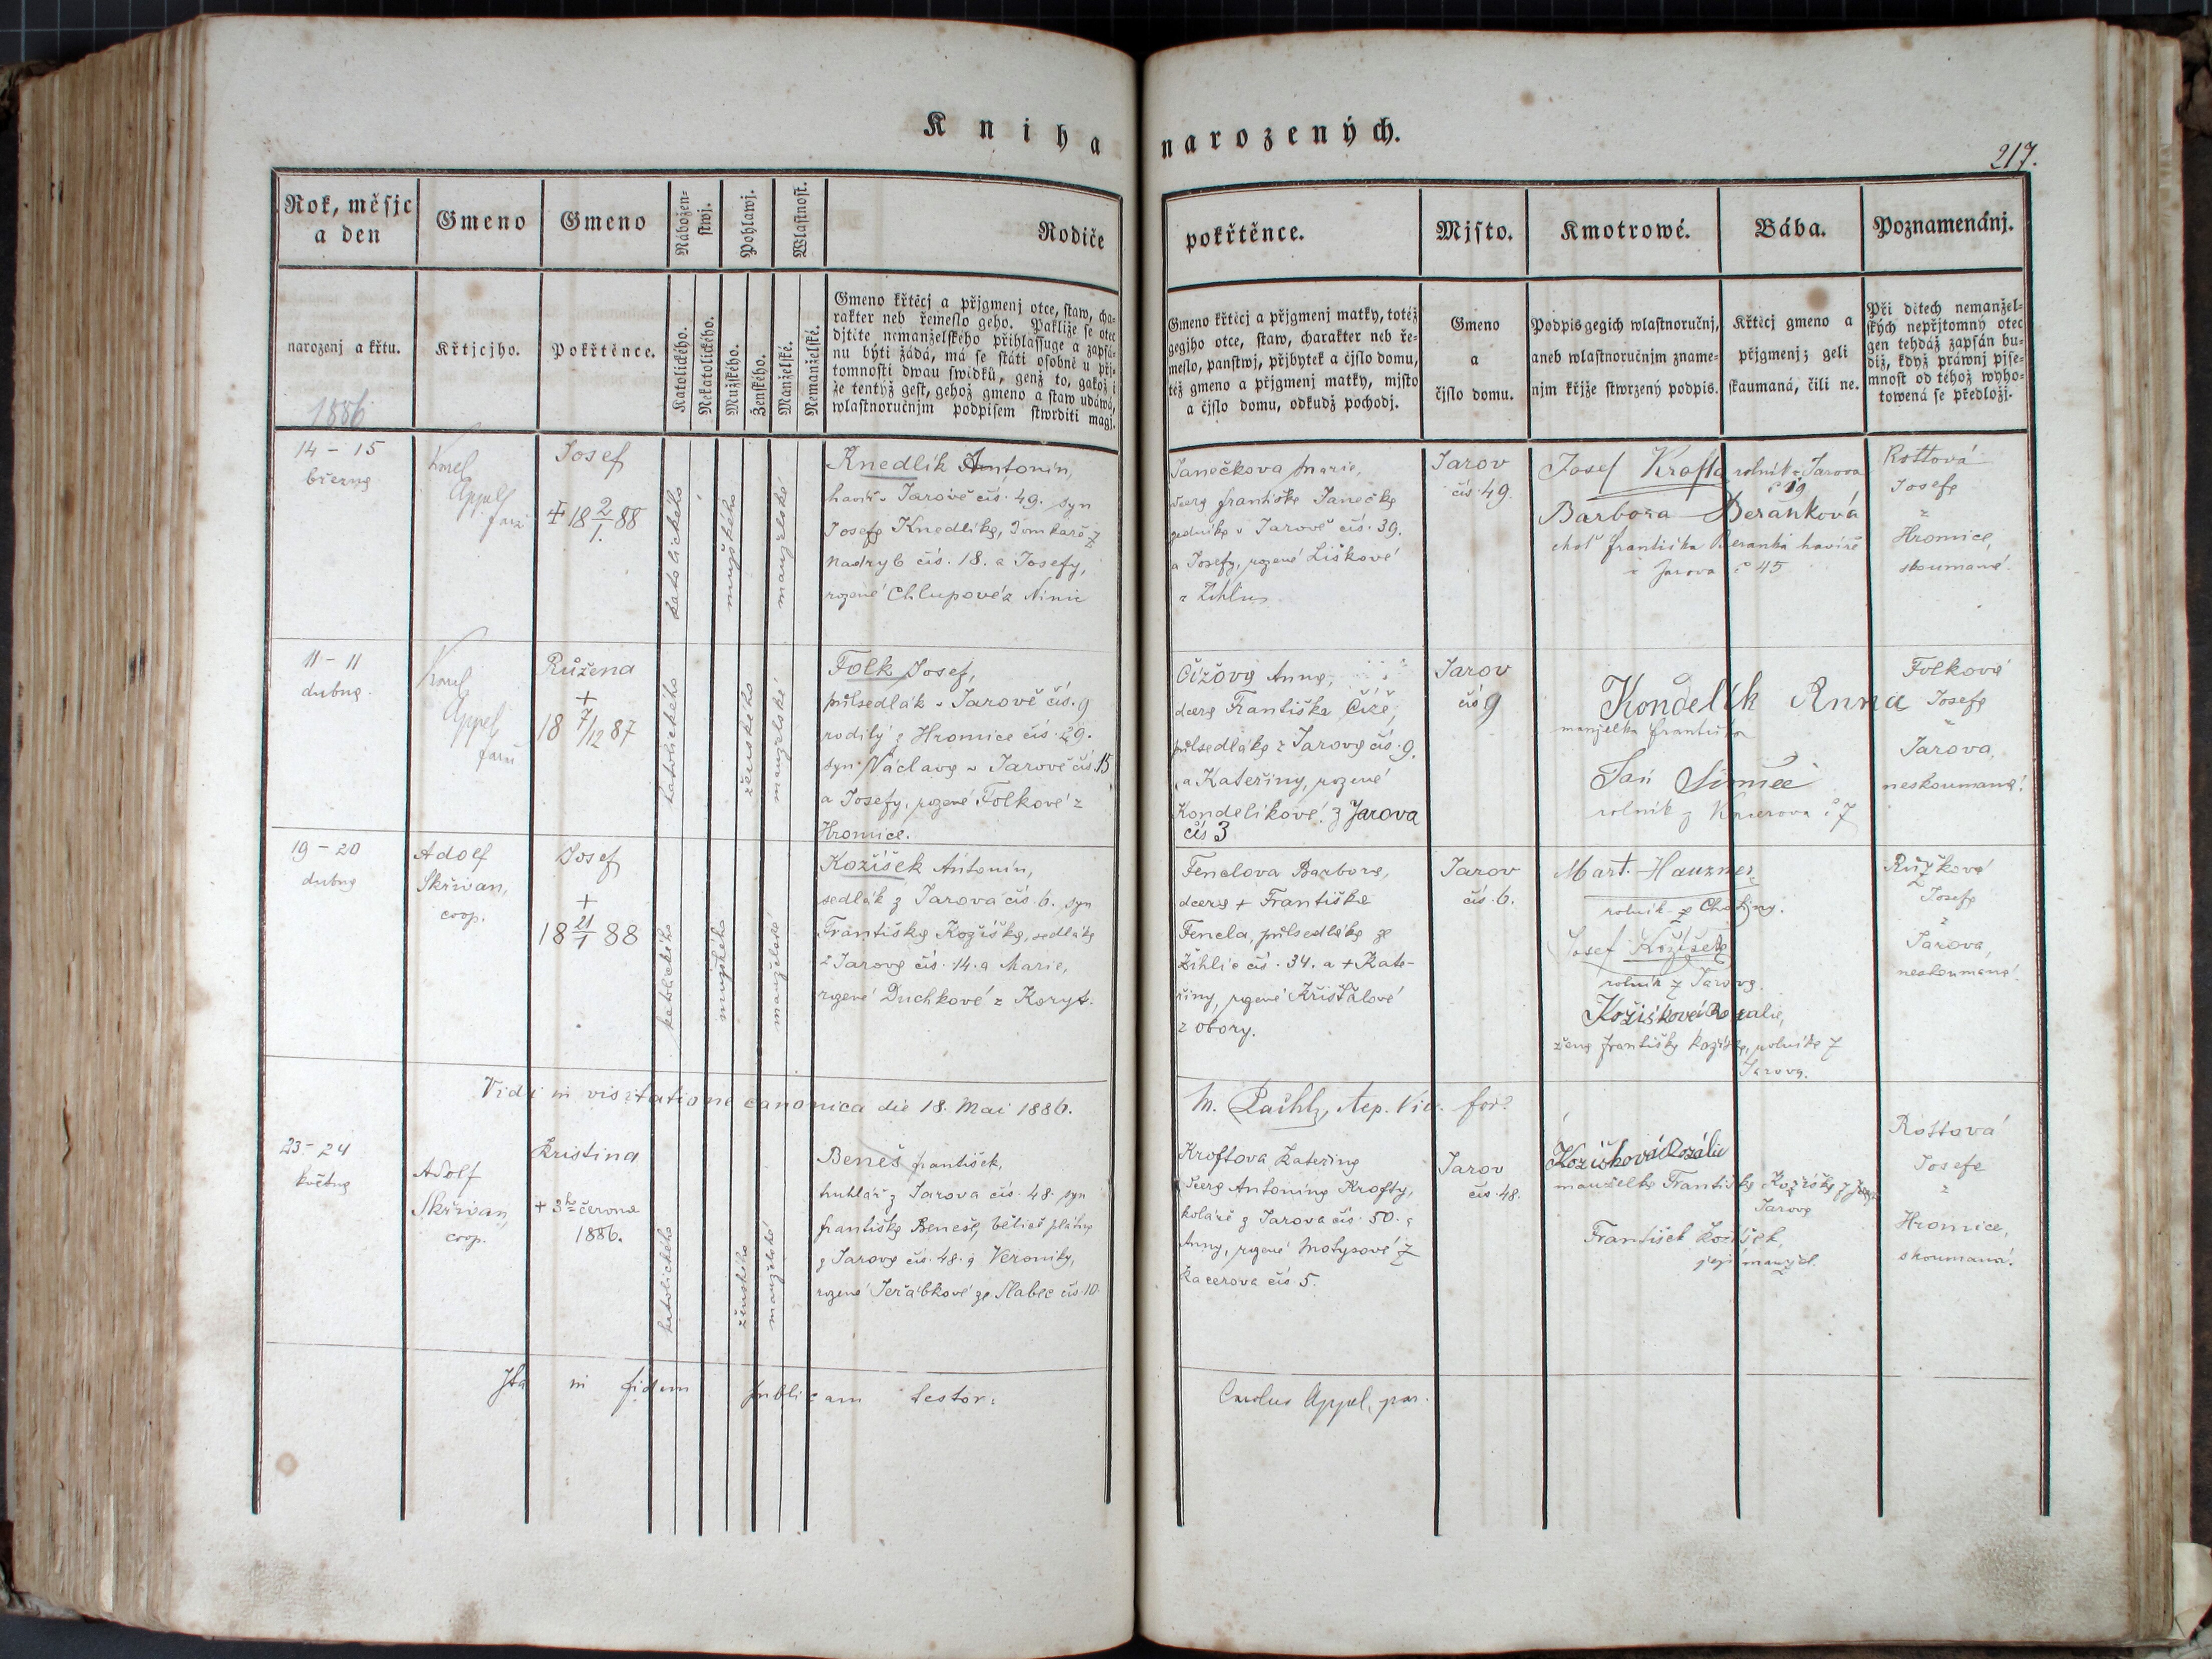 Kniha narozených.
217.
Rok, měsjc a den
Gmeno
Gmeno
Nábožen-
stwj.
Pohlawj.
Wlastnost.
Rodiče
pokřtěnce.
Mjsto.
Kmotrowé.
Bába.
Poznamenánj.
narozenj a křtu.
1886
Křtjcjho.
Pokřtěnce.
Katolického.
Nekatolického.
Mužského.
Ženského.
Manželské.
Nemanželské.
Gmeno křtěcj a přjgmenj otce, staw, cha-
rakter neb řemeslo geho. Pakliže se otec
djtěte nemanželského přihlassuge a zapsá-
nu býti žádá, má se státi osobně u přj-
tomnosti dwau swědků, genž to, gakož i
že tentýž gest, gehož gmeno a staw udáwá,
wlastnoručnjm podpisem stwrditi magj.
Gmeno křtěcj a přjgmenj matky, totéž
gegjho otce, staw, charakter neb ře-
meslo, panstwj, přjbytek a čjslo domu,
též gmeno a přjgmenj matky, mjsto
a čjslo domu, odkudž pochodj.
Gmeno
a
čjslo domu.
Podpis gegich wlastnoručnj,
aneb wlastnoručnjm zname-
njm křjže stwrzený podpis.
Křtěcj gmeno a
přjgmenj; geli
skaumaná, čili ne.
Při dětech nemanžel-
ských nepřjtomný otec
gen tehdáž zapsán bu-
diž, když práwnj pjse-
mnost od téhož wyho-
towená se předložj.
14 - 15
března
Karel
Appel
farář
Josef
+ 18 2/1. 88
katolického
mužského
manželské
Knedlík Antonín,
havíř v Jarově čís. 49. syn
Josefa Knedlíka, domkaře z
Nadryb čís. 18. a Josefy,
rozené Chlupové z
Janečkova Marie,
dcera Františka Janečka
v Jarově čís. 39.
a Josefy, rozené Liškové
z Žihlus
Jarov
čís. 49.
Josef Krofta rolník z Jarova
č 19
Barbora Beranková
choť Františka Beranka havíře
z Jarova č 45
Rottová
Josefa
z
Hromice,
skoumaná.
11 - 11
dubna.
Karel
Appel
farář
Růžena
+
18 7/12 87
katolického
ženského
manželské
Folk Josef,
půlsedlák v Jarově čís. 9
rodilý z Hromice čís. 29.
syn Václava v Jarově čís. 15
a Josefy, rozené Folkové z
Hromice.
Čížova Anna,
dcera Františka Číže,
půlsedláka z Jarova čís. 9.
a Kateřiny, rozené
Kondelíkové z Jarova
čís 3
Jarov
čís 9
Kondelík Anna
manželka Františka
Jan Šimáček
rolník z č 7
Folková
Josefa
z
Jarova,
neskoumaná.
19 - 20
dubna
Adolf
Skřivan,
coop.
Josef
+
18 21/1 88
katolického
mužského
manželské
Kožíšek Antonín,
sedlák z Jarova čís. 6. syn
Františka Kožíška, sedláka
z Jarova čís. 14. a Marie,
rozené Duchkové z Koryt.
Fenclova Barbora,
dcera + Františka
Fencla, půlsedláka ze
Žihlic čís. 34. a + Kate-
řiny, rozené Křišťálové
z Obory.
Jarov
čís. 6.
Mart. Hauzner
rolník z
Josef Kožíšek
rolník z Jarova.
Kožíšková Rozalie,
žena Františka Kožíška, rolníka z
Jarova.
Růžková
Josefa
z
Jarova,
neskoumaná.
Vidi in visitatione canonica die 18. Mai 1886.
Aep. Vic. for.
23 - 24
května
Adolf
Skřivan,
coop.
Kristina
+ 3ho června
1886.
katolického
ženského
manželské
Beneš František,
truhlář z Jarova čís. 48. syn
Františka Beneše, běliče plátna
z Jarova čís. 48. a Veroniky,
rozené Jeřábkové ze Slabec čís. 10.
Kroftova Kateřina
dcera Antonína Krofty,
koláře z Jarova čís. 50. a
Anny, rozené Motysové z
Kacerova čís. 5.
Jarov
čís. 48.
Kožíšková Rozálie
manželka Františka Kožíška z
Jarova
František Kožíšek,
její manžel.
Rottová
Josefa
z
Hromice,
skoumaná.
Ita in fidem publicam testor:
Carolus Appel, par.